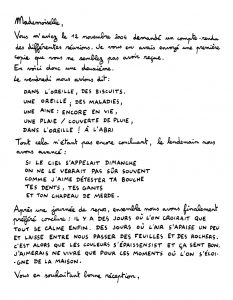 Mademoiselle,
Vous m'aviez le 12 novembre 2006 demandé un compte-rendu
des différentes réunions. Je vous en avais envoyé une première
copie que vous ne semblez pas avoir reçue.
En voici donc une deuxième.
Le vendredi nous avions dit :
DANS L'OREILLE, DES BISCUITS,
UNE OREILLE ; DES MALADIES,
UNE AINE : ENCORE EN VIE,
UNE PLAIE / COUVERTE DE PLUIE,
DANS L'OREILLE ! À L'ABRI
Tout cela n'étant pas encore concluant, le lendemain nous
avons avancé :
SI LE CIEL S'APPELAIT DIMANCHE
ON NE LE VERRAIT PAS SÛR SOUVENT
COMME J'AIME DÉTESTER TA BOUCHE
TES DENTS, TES GANTS
ET TON CHAPEAU DE MERDE.
Après une journée de repos, ensemble nous avons finalement
préféré conclure : IL Y A DES JOURS OÙ L'ON CROIRAIT QUE
TOUT SE CALME ENFIN. DES JOURS OÙ L'AIR S'APAISE UN PEU
ET LAISSE ENTRE NOUS PASSER DES FEUILLES ET DES ROCHERS.
C'EST ALORS QUE LES COULEURS S'ÉPAISSISSENT ET ÇA SENT BON.
J'AIMERAIS NE VIVRE QUE POUR CES MOMENTS OÙ L'ON S'ÉLOI-
GNE DE LA MAISON.
Vous en souhaitant bonne réception,